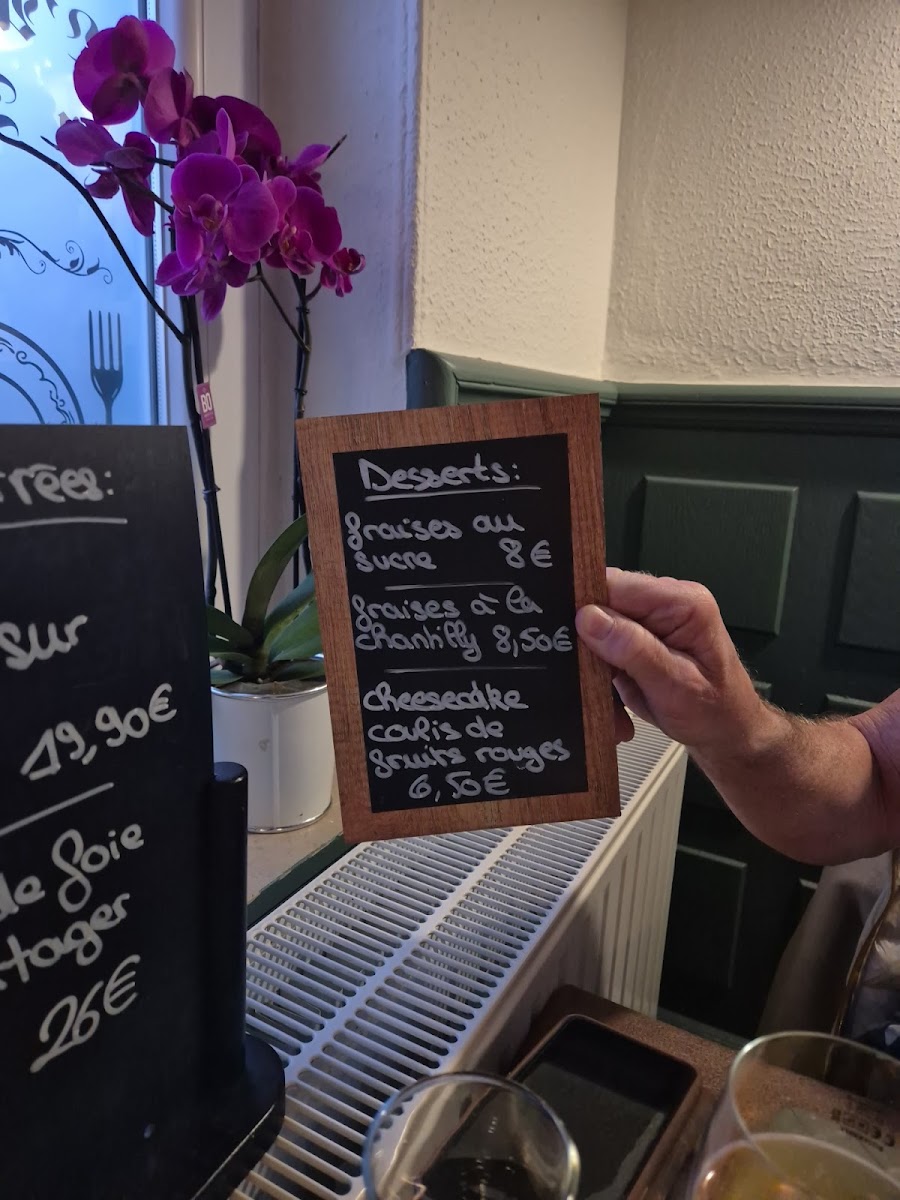 Desserts:
fraises au
sucre 8€
fraises à la
chantilly 8,50€
cheesecake
coulis de
fruits rouges
6,50€
rées:
sur
19,90€
de foie
rtager
26€
BO